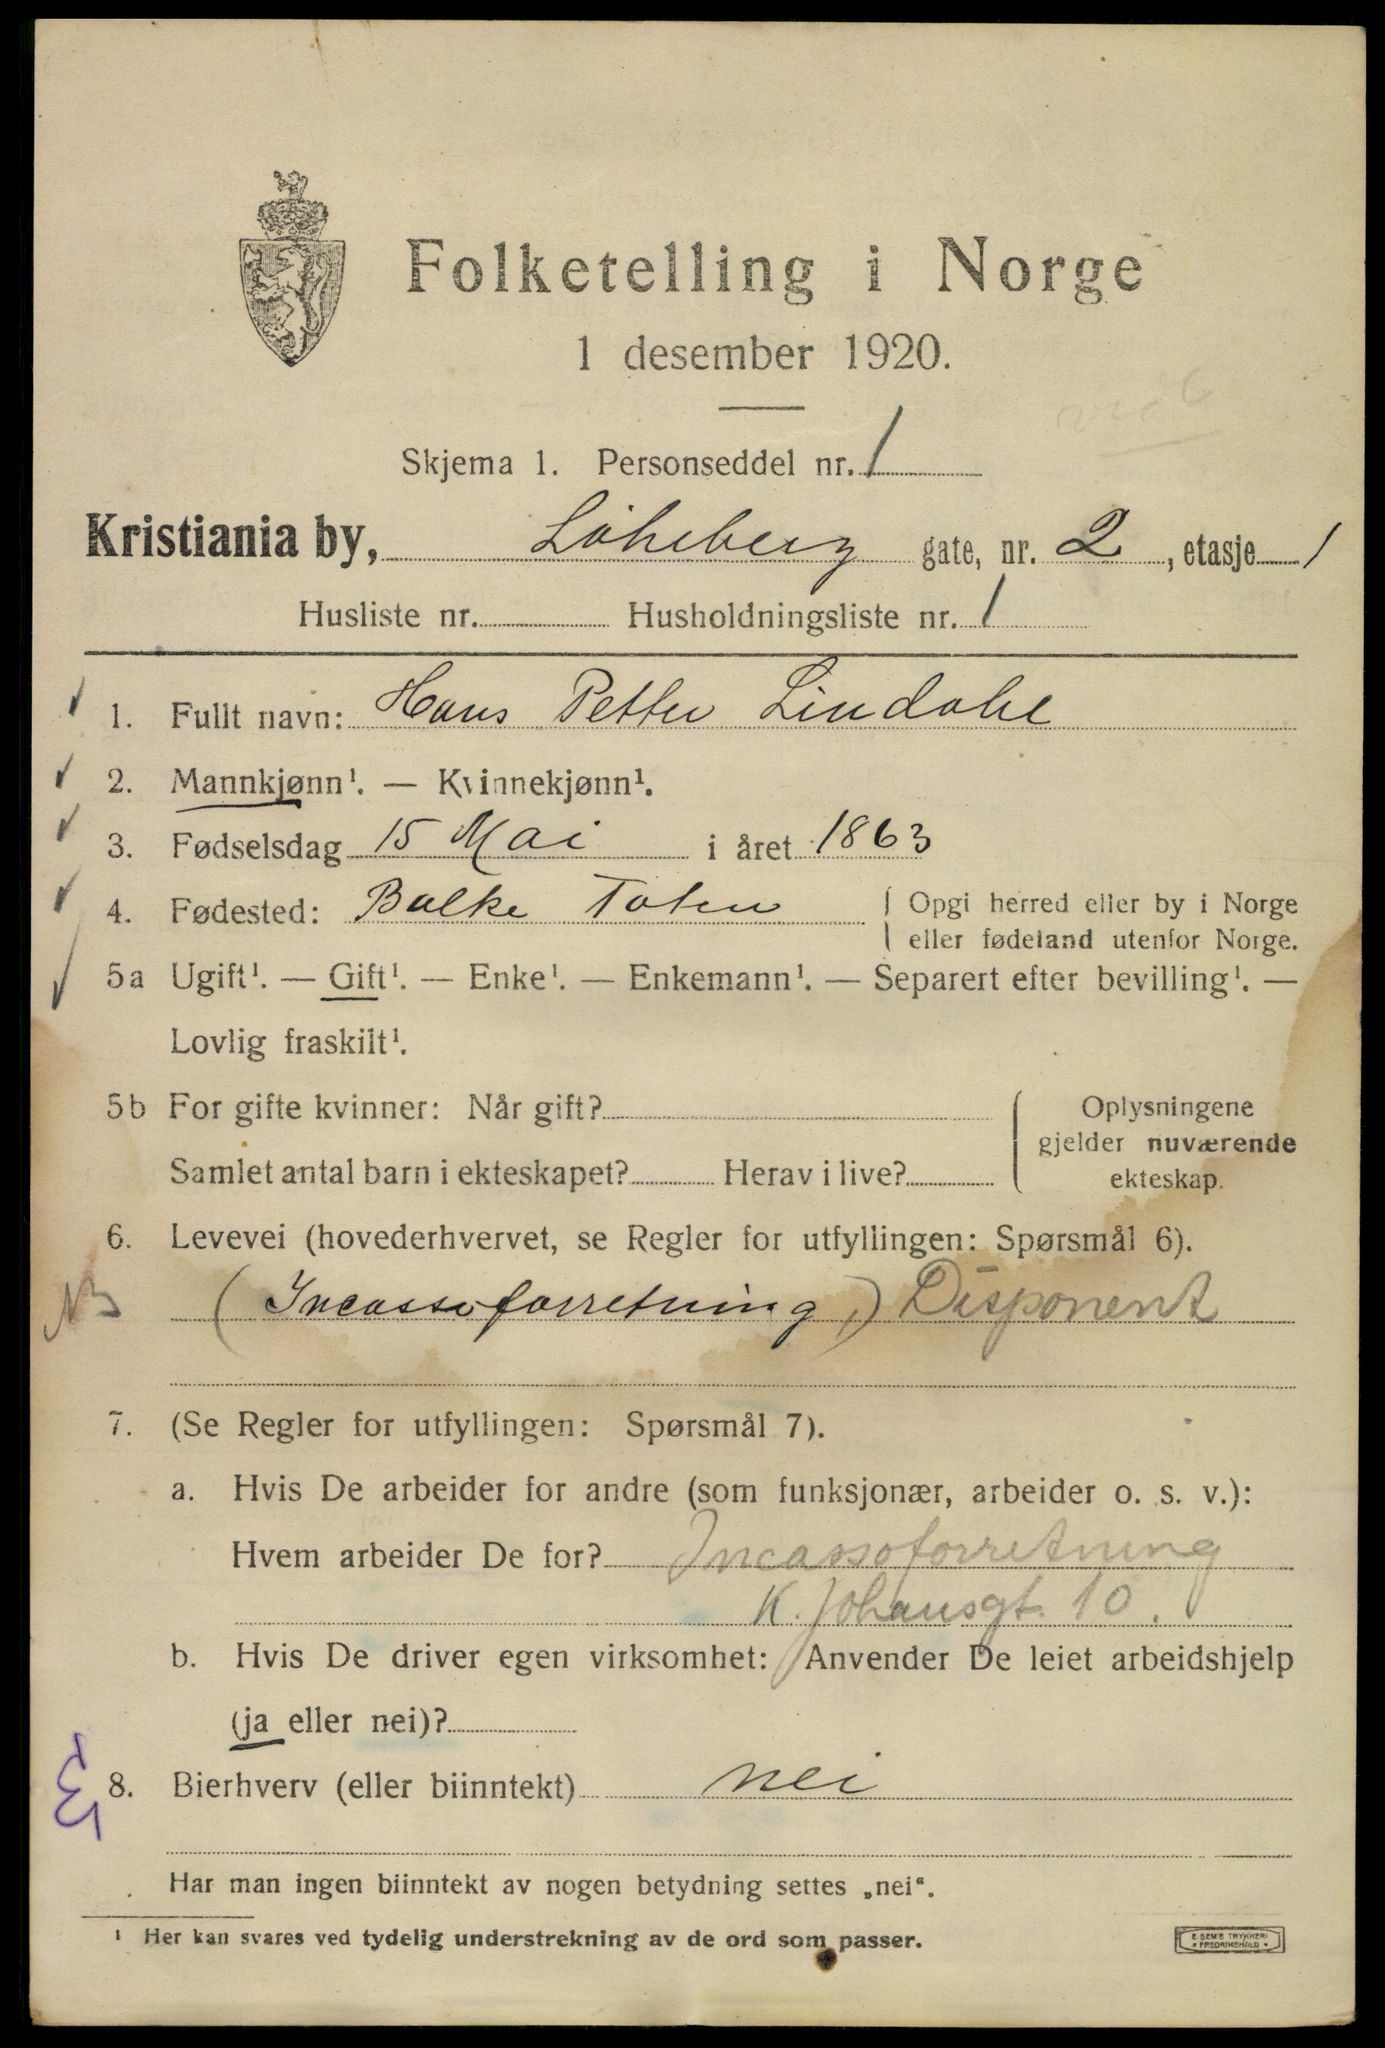 Folketelling i Norge
1 desember 1920.
Skjema 1. Personseddel nr. 1
Kristiania by, Løkeberg gate, nr. 2, etasje 1
Husliste nr. Husholdningsliste nr. 1
1. Fullt navn: Hans Petter Lindahl
2. Mannkjønn¹. — Kvinnekjønn¹.
3. Fødselsdag 15 Mai i året 1863
4. Fødested: Balke Toten { Opgi herred eller by i Norge
eller fødeland utenfor Norge.
5a Ugift¹. — Gift¹. — Enke¹. — Enkemann¹. — Separert efter bevilling¹. —
Lovlig fraskilt¹.
5b For gifte kvinner: Når gift?
Samlet antal barn i ekteskapet? Herav i live?
Oplysningene
gjelder nuværende
ekteskap.
6. Levevei (hovederhvervet, se Regler for utfyllingen: Spørsmål 6).
NB (Incassoforretning,) Disponent
7. (Se Regler for utfyllingen: Spørsmål 7).
a. Hvis De arbeider for andre (som funksjonær, arbeider o. s. v.):
Hvem arbeider De for? Incassoforretning
K. Johansgt. 10.
b. Hvis De driver egen virksomhet: Anvender De leiet arbeidshjelp
(ja eller nei)?
8. Bierhverv (eller biinntekt) nei
Har man ingen biinntekt av nogen betydning settes „nei“.
¹ Her kan svares ved tydelig understrekning av de ord som passer.
E. SEM'S TRYKKERI
• FREDRIKSHALD •